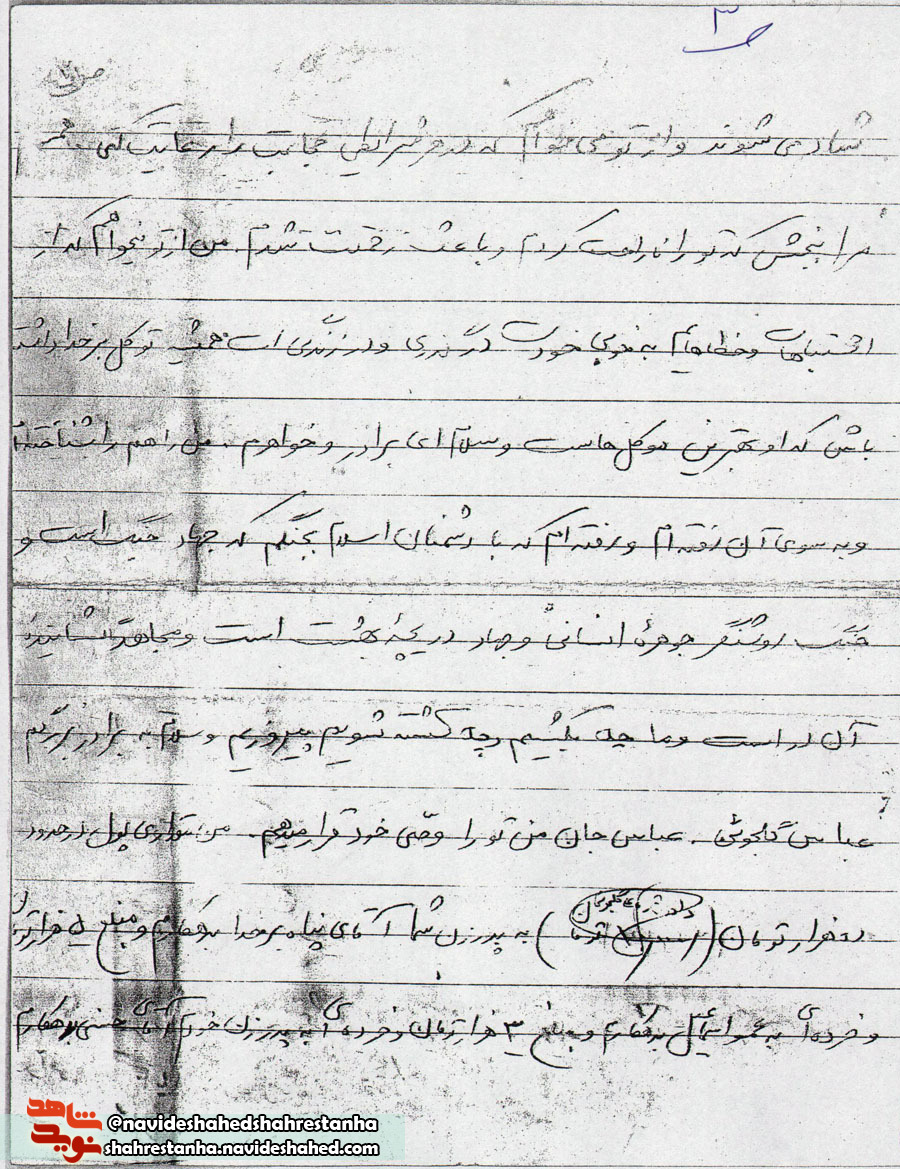 ص ۳
شاد می شوند و از تو می خواهم که در هر شرایطی حجابت را رعایت کنی.
مرا ببخش که تو را ناراحت کردم و باعث زحمتت شدم. من از تو میخواهم که از
اشتباهات و خطاهایم به خوبی خودت درگذری و در زندگی ات همیشه توکل بر خدا داشته
باش که او بهترین موکل هاست و سلام ای برادر و خواهرم. من راهم را شناخته ام
و به سوی آن رفته ام و رفته ام که با دشمنان اسلام بجنگم که جهاد جنگ است و
جنگ روشنگر جوهرۀ انسانی و جهاد دریچۀ بهشت است و مجاهد گشایندۀ
آن در است و ما چه بکشیم و چه کشته شویم پیروزیم و سلام به برادر بزرگم
عباس گلجوئی. عباس جان من تو را وصی خود قرار میدهم. من مقداری پول در حدود
ده هزار تومان به پدرزن شما آقای پناه بر خدا بدهکارم و مبلغ ۵ هزار تومان
و خرده ای به عمو اسماعیل بدهکارم و مبلغ ۳ هزار تومان و خرده ای به پدرزن خودم آقای حسنی بدهکارم
شاهد
نوید
@navideshahedshahrestanha
shahrestanha.navideshahed.com